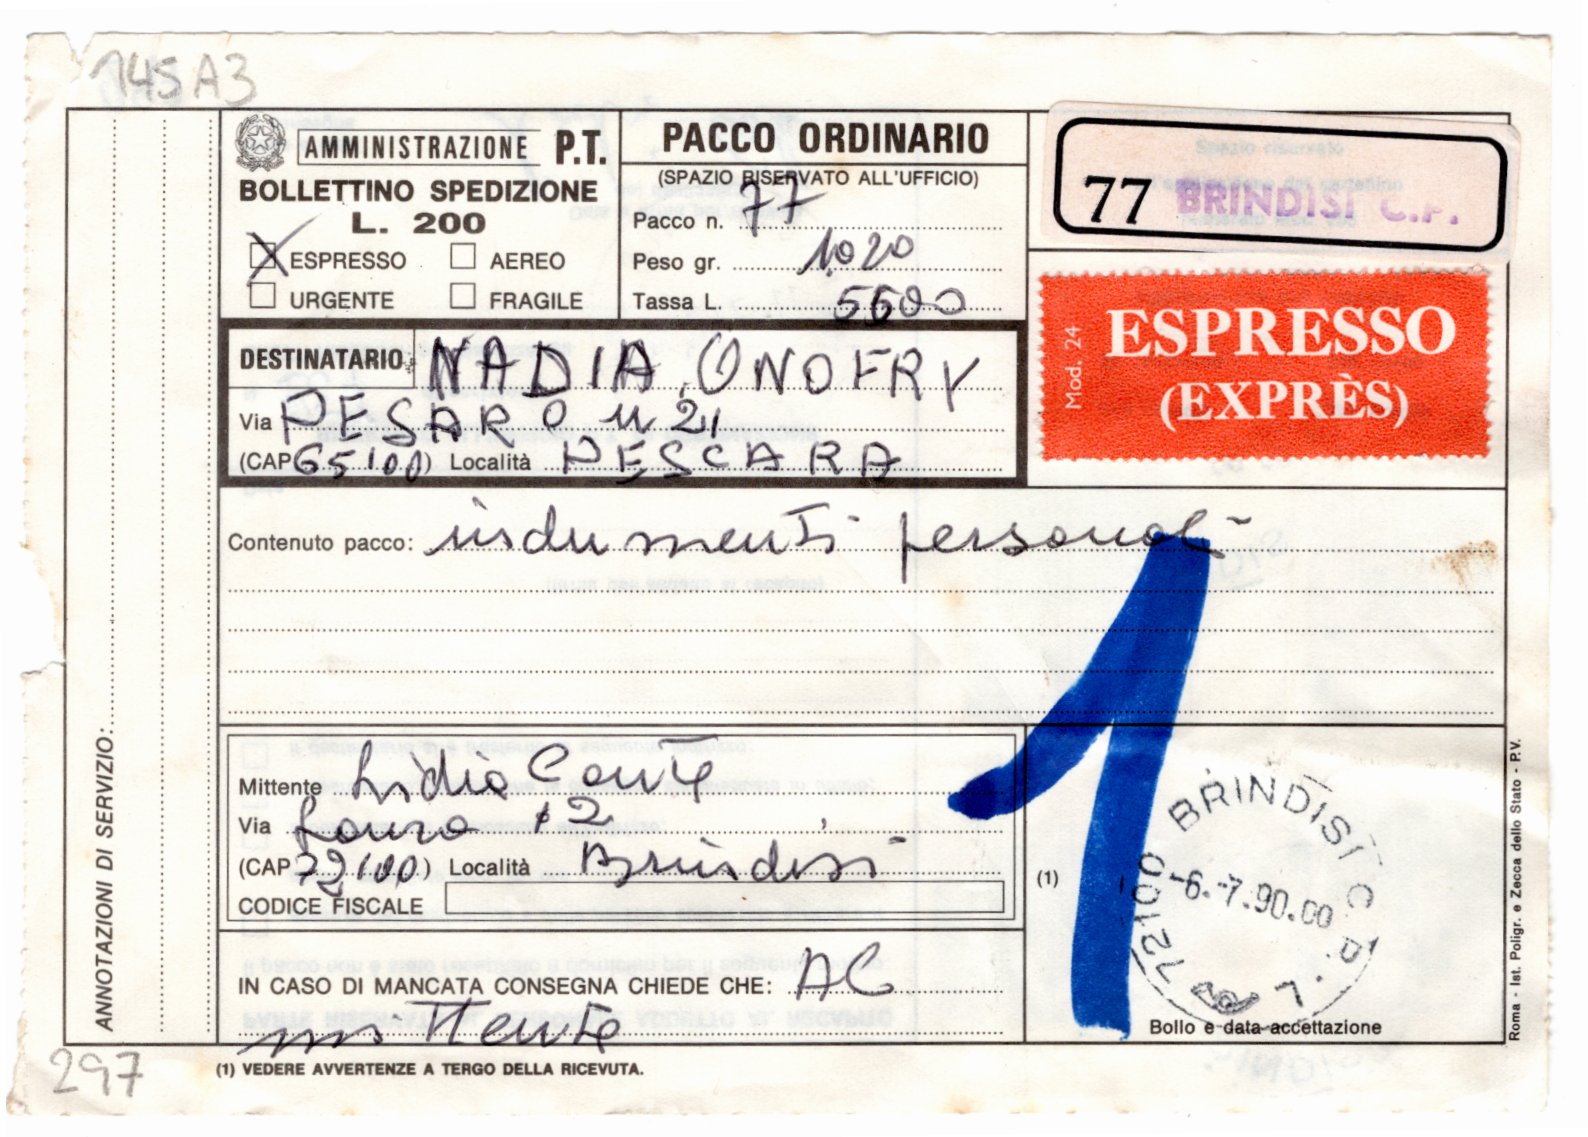 145A3
AMMINISTRAZIONE P.T.
BOLLETTINO SPEDIZIONE
L. 200
X ESPRESSO AEREO
URGENTE FRAGILE
PACCO ORDINARIO
(SPAZIO RISERVATO ALL'UFFICIO)
Pacco n. 77
Peso gr. 1020
Tassa L. 5600
77 BRINDISI C.P.
Mod. 24
ESPRESSO
(EXPRÈS)
DESTINATARIO: NADIA ONOFRY
Via PESARO N 21
(CAP 65100) Località PESCARA
Contenuto pacco: indumenti personali
1
ANNOTAZIONI DI SERVIZIO:
Mittente Lidia Conte
Via 2
(CAP 72100) Località Brindisi
CODICE FISCALE
IN CASO DI MANCATA CONSEGNA CHIEDE CHE: AC
mittente
(1)
72100 BRINDISI C.P.
-6.-7.90.00
Bollo e data accettazione
(1) VEDERE AVVERTENZE A TERGO DELLA RICEVUTA.
Roma - Ist. Poligr. e Zecca dello Stato - P.V.
297